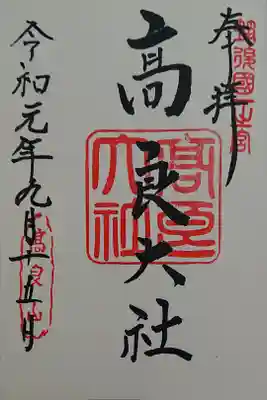 奉拝
筑後國一之宮
高良大社
髙良大社
令和元年九月十五日
髙良山